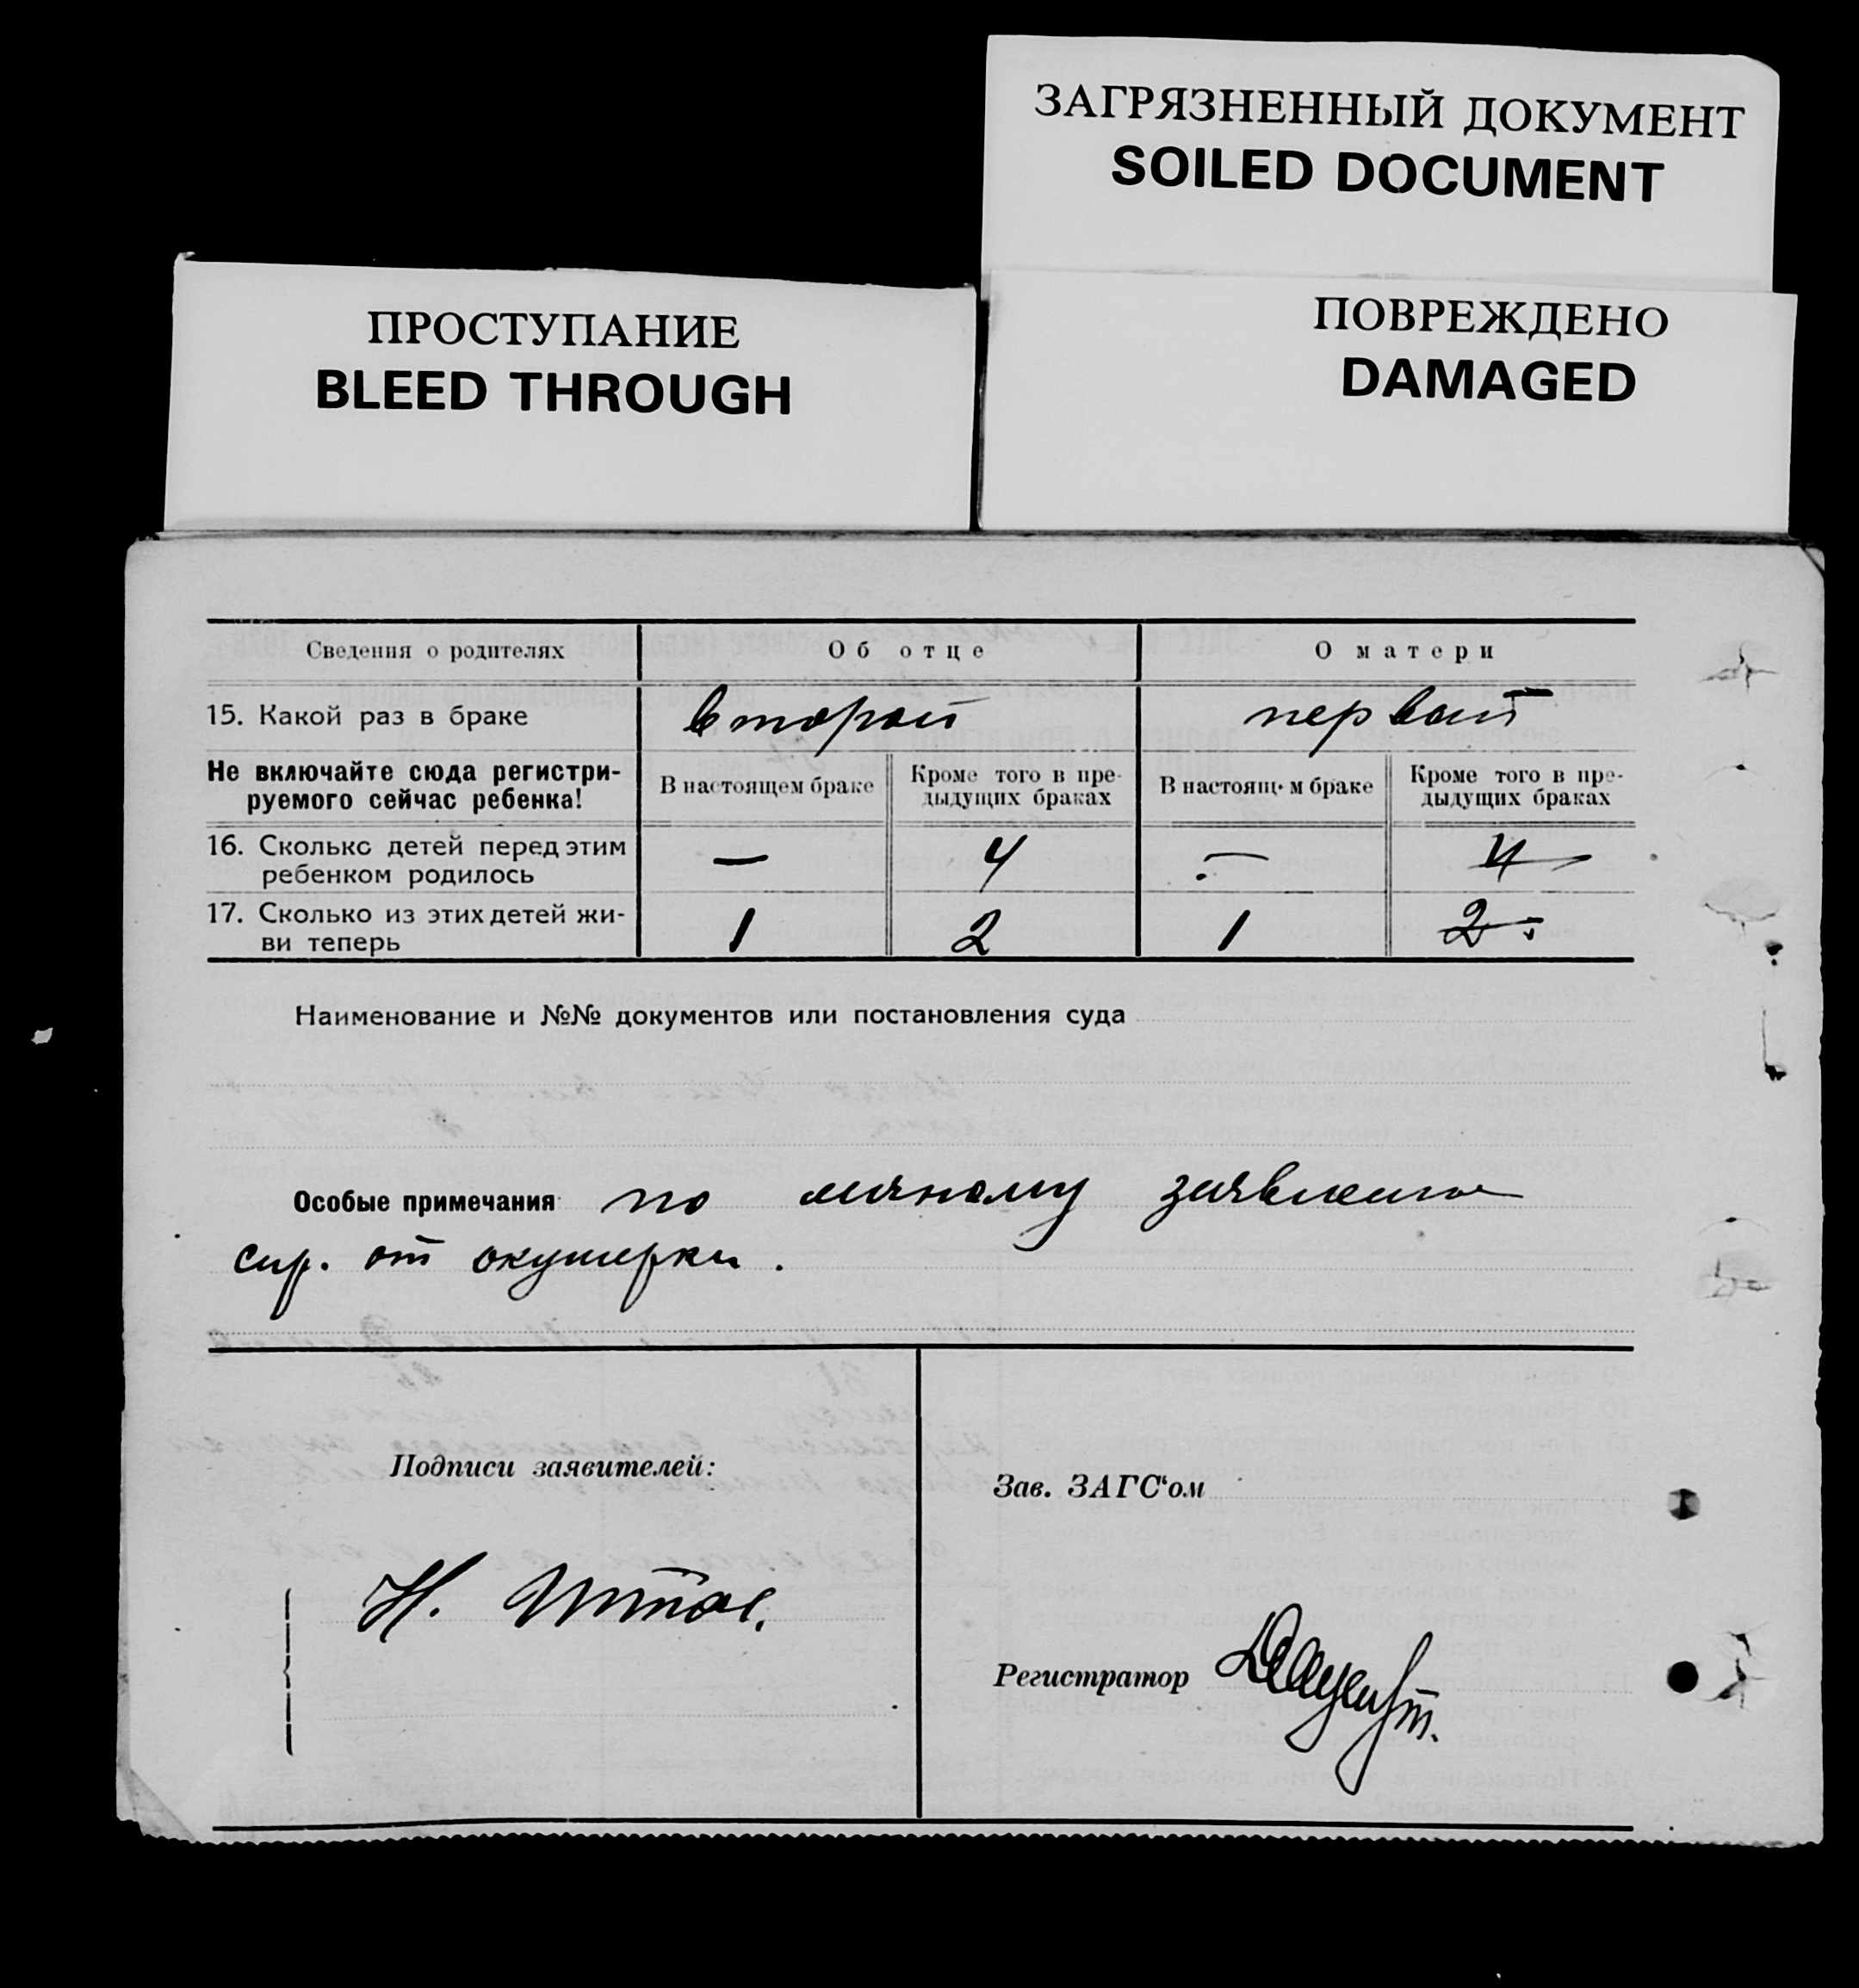 ЗАГРЯЗНЕННЫЙ ДОКУМЕНТ
SOILED DOCUMENT
ПРОСТУПАНИЕ
BLEED THROUGH
ПОВРЕЖДЕНО
DAMAGED
Сведения о родителях Об отце О матери
15. Какой раз в браке второй первый
Не включайте сюда регистри-
руемого сейчас ребенка!
В настоящем браке
Кроме того в пре-
дыдущих браках
В настоящ м браке
Кроме того в пре-
дыдущих браках
16. Сколько детей перед этим
ребенком родилось
— 4 — 4
17. Сколько из этих детей жи-
ви теперь
1 2 1 2
Наименование и №№ документов или постановления суда
Особые примечания по личному заявлению
спр. от акушерки.
Подписи заявителей:
Зав. ЗАГС'ом
Н.
Регистратор